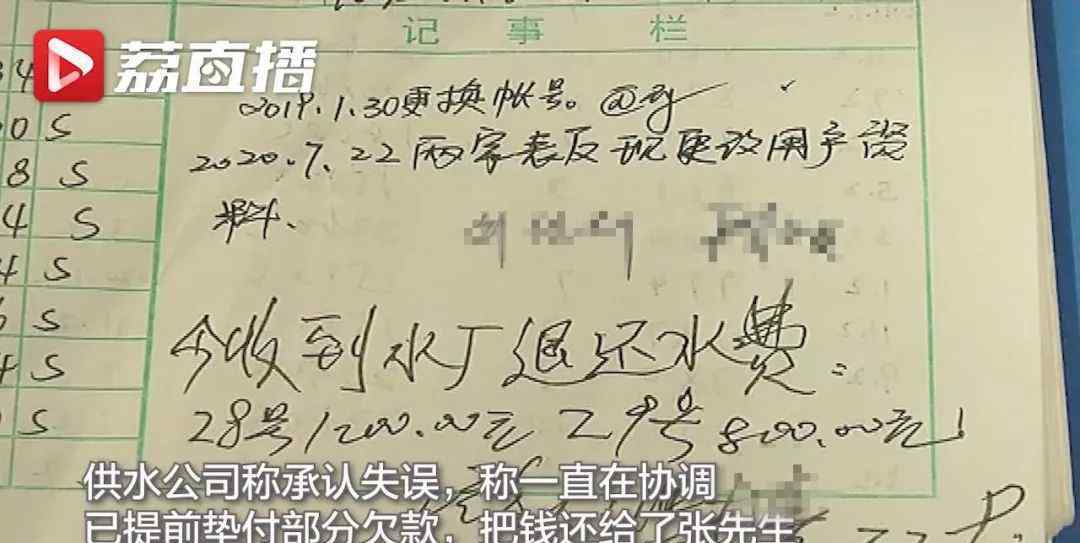 记事栏
荔直播
34
0 S
2019.1.30更换帐号。
8 S
2020.7.22两家表反现更改用户资
4 S
料、
4 S
S
今收到水厂退还水费:
4 S
28号1200.00元 29号800.00元!
S
供水公司称承认失误，称一直在协调
已提前垫付部分欠款，把钱还给了张先生